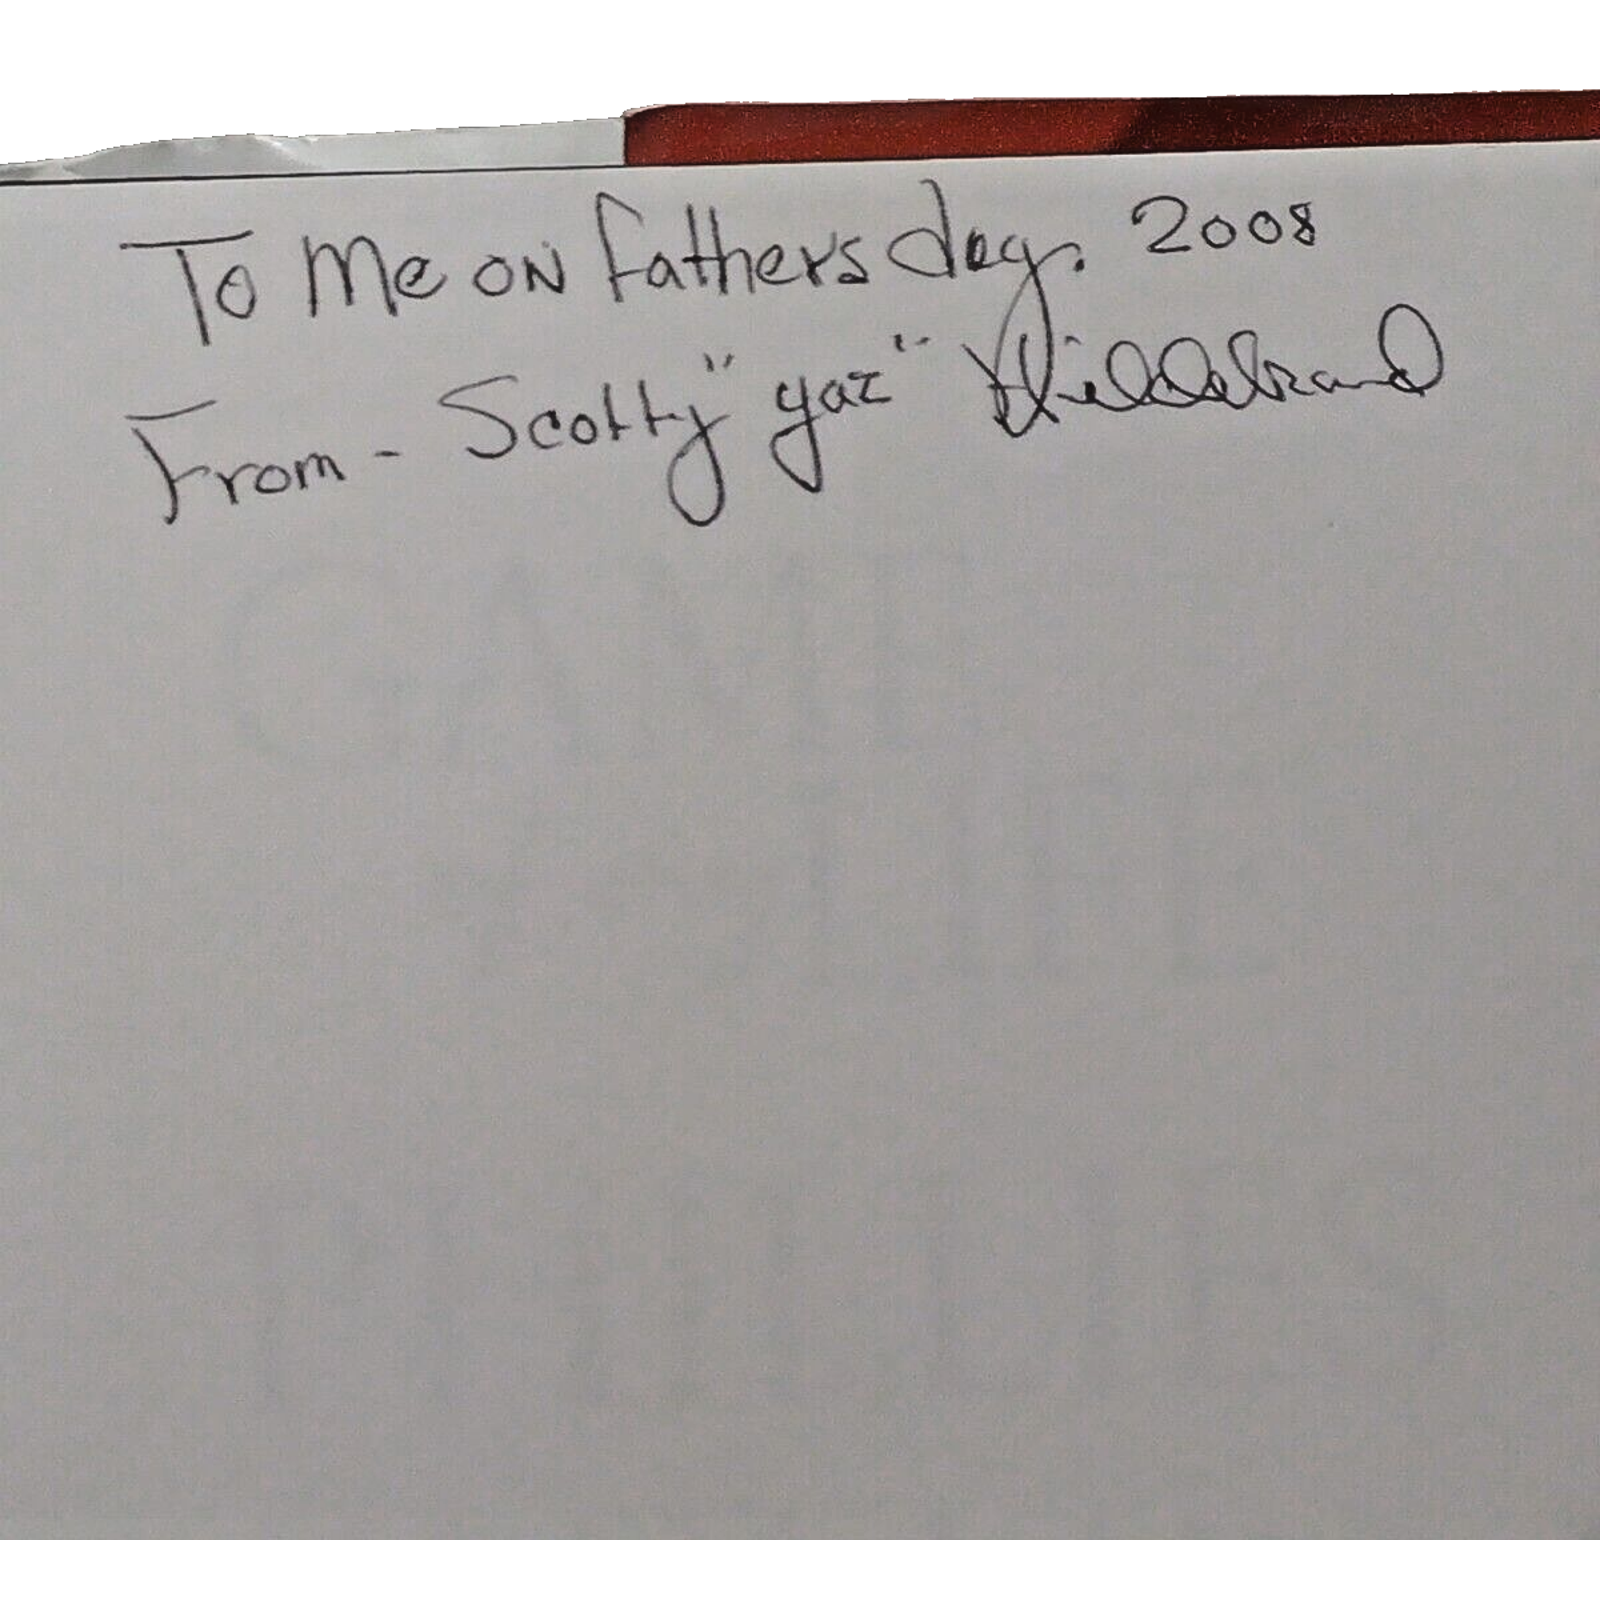 To Me on Fathers day. 2008
From - Scotty "yaz" Hildebrand
GAME
THE